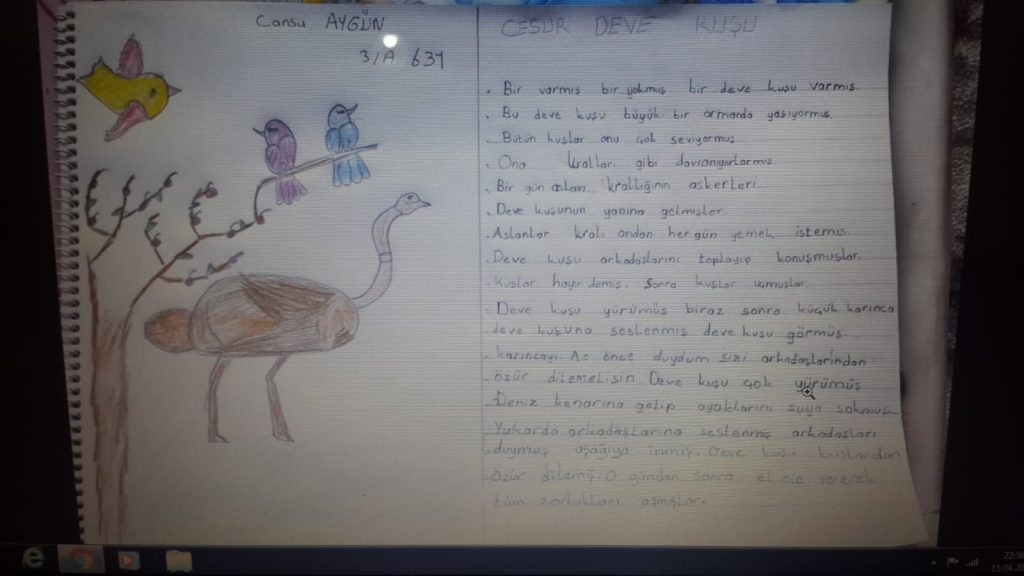 Cansu AYGÜN
3/A 634
CESUR DEVE KUŞU
. Bir varmış bir yokmuş bir deve kuşu varmış.
. Bu deve kuşu büyük bir ormanda yaşıyormuş
. Bütün kuşlar onu çok seviyormuş
. Ona kralları gibi davranıyorlarmış
. Bir gün aslan krallığının askerleri.
. Deve kuşunun yanına gelmişler.
. Aslanlar kralı ondan her gün yemek istemiş.
. Deve kuşu arkadaşlarını toplayıp konuşmuşlar.
. Kuşlar hayır demiş. Sonra kuşlar uçmuşlar
. Deve kuşu yürümüş biraz sonra küçük karınca
deve kuşuna seslenmiş deve kuşu görmüş
karıncayı. Az önce duydum sizi arkadaşlarından
özür dilemelisin. Deve kuşu çok yürümüş
Deniz kenarına gelip ayaklarını suya sokmuş.
Yukarda arkadaşlarına seslenmiş arkadaşları
duymuş aşağıya inmiş. Deve kuşu kuşlardan
özür dilemiş. O günden sonra el ele vererek
tüm zorlukları aşmışlar.
22:56